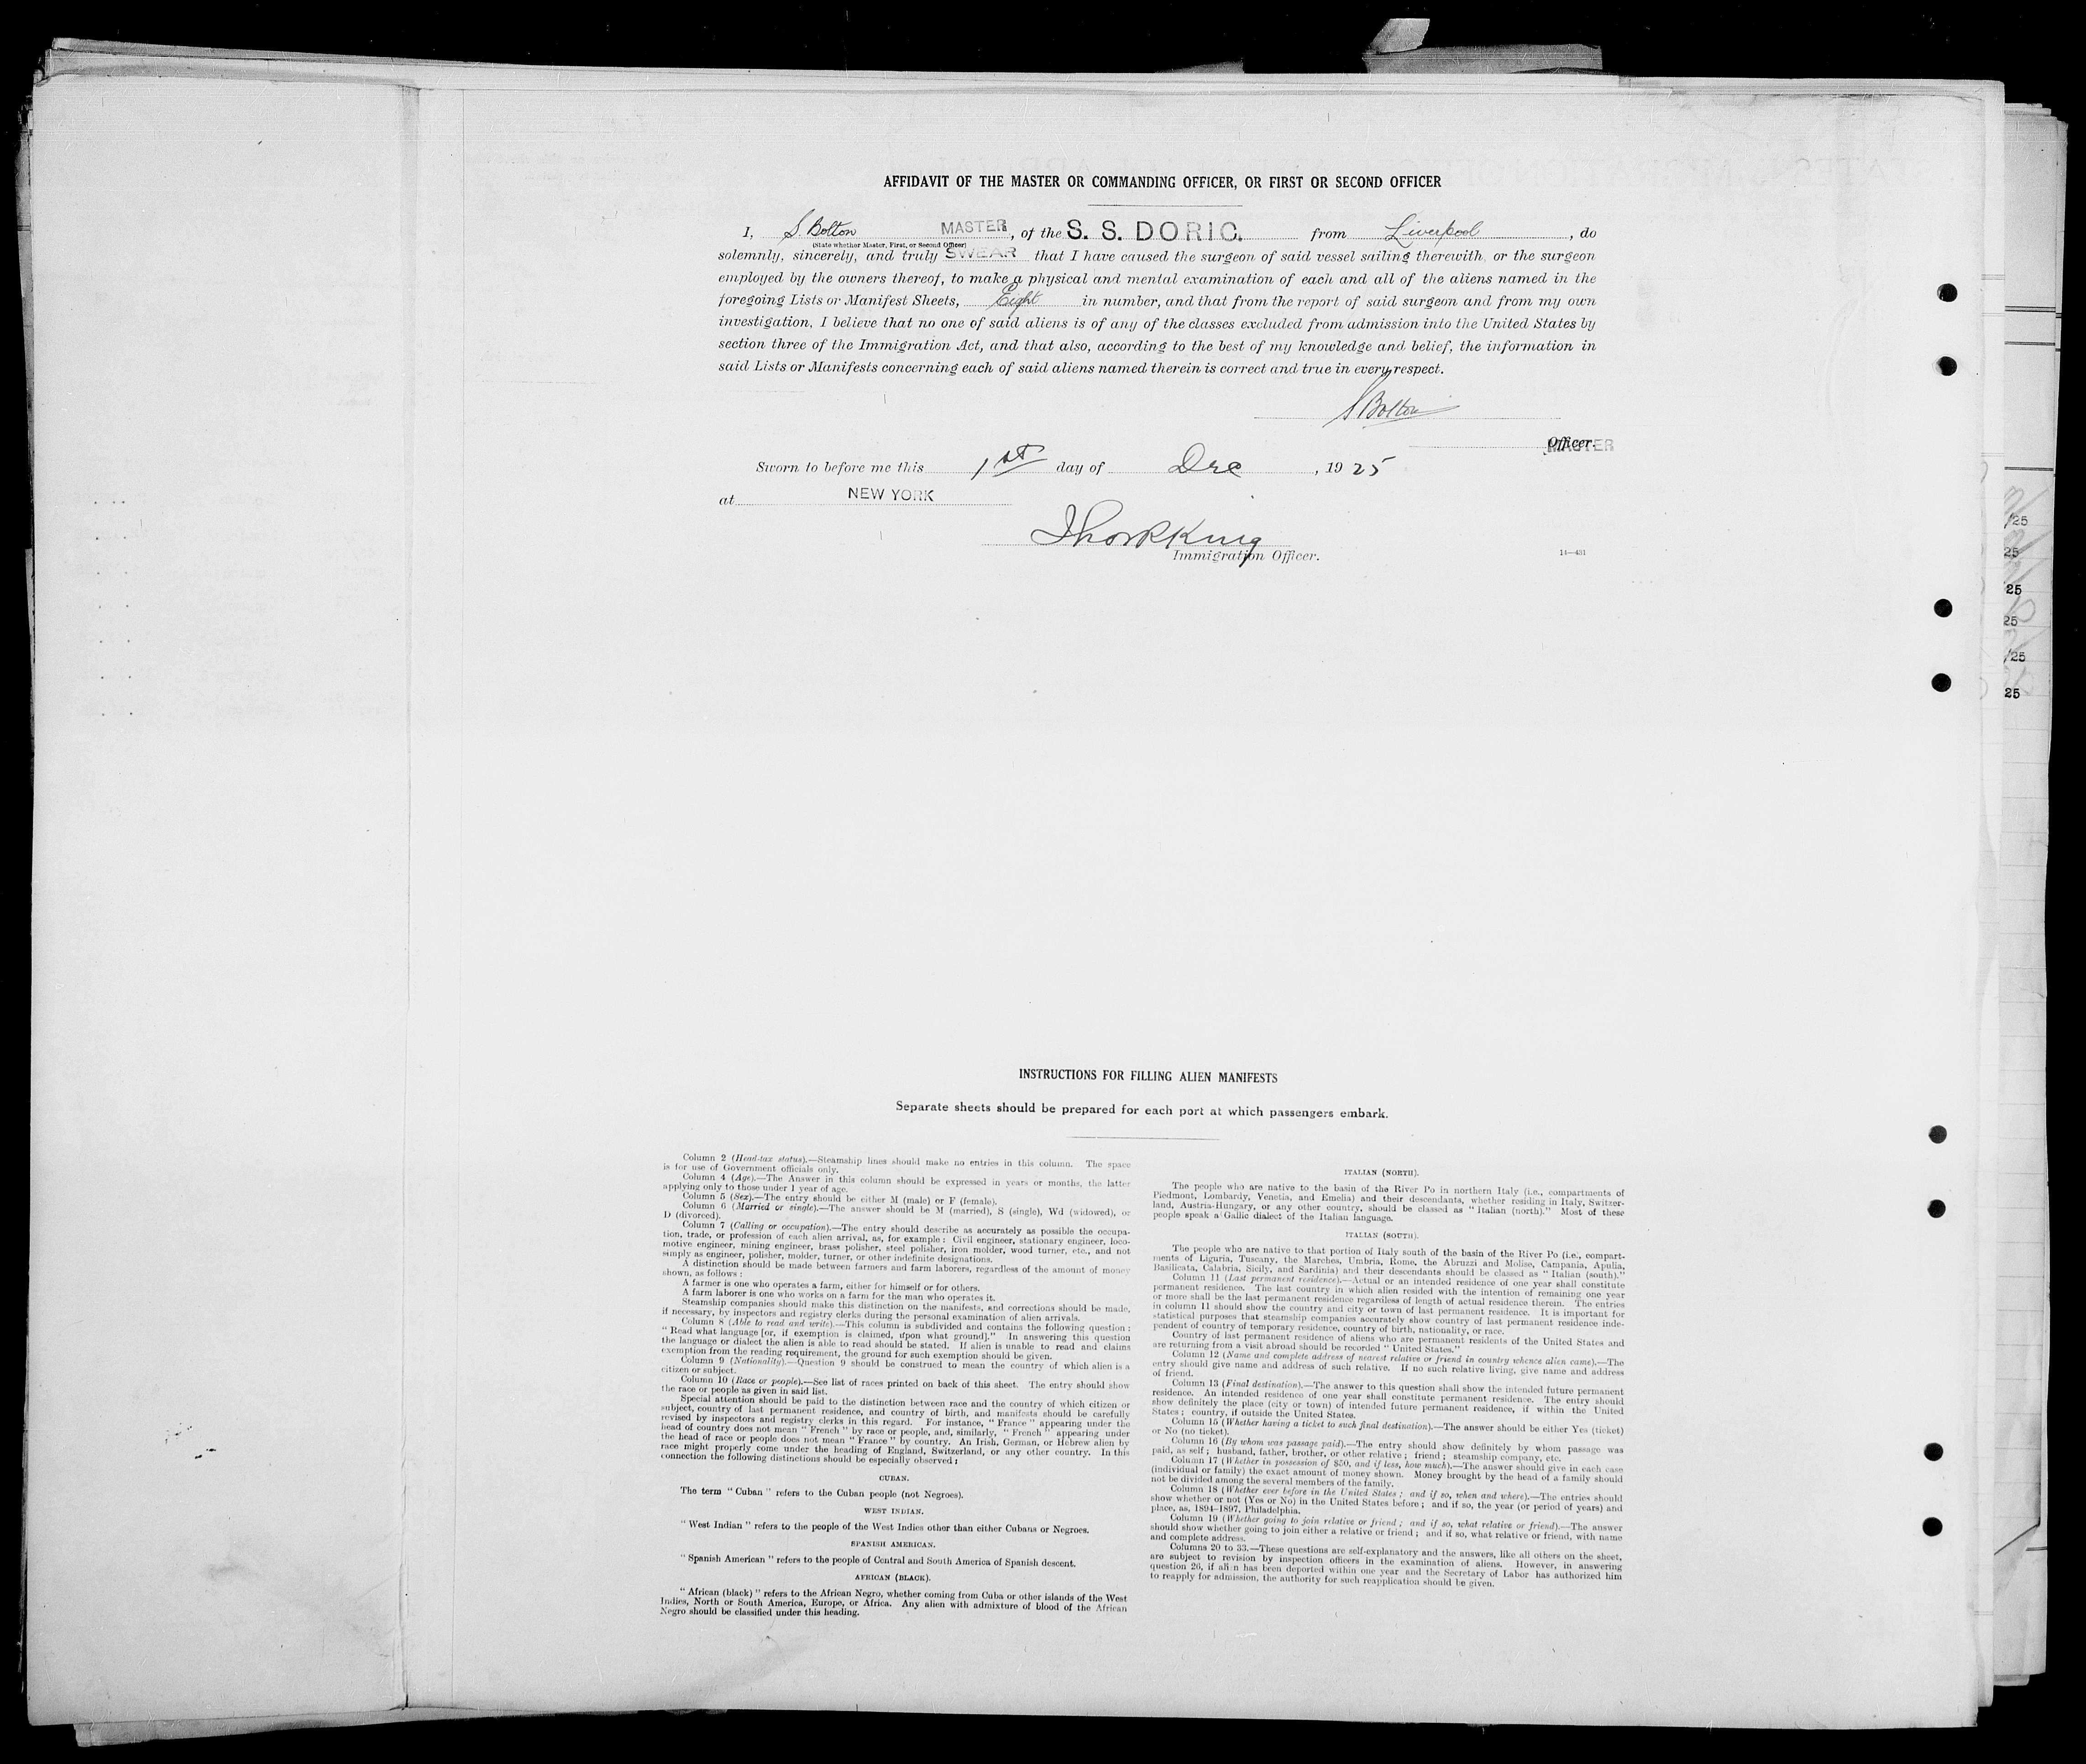 AFFIDAVIT OF THE MASTER OR COMMANDING OFFICER, OR FIRST OR SECOND OFFICER
I, S. Bolton MASTER, of the S. S. DORIC. from Liverpool, do
(State whether Master, First, or Second Officer)
solemnly, sincerely, and truly SWEAR that I have caused the surgeon of said vessel sailing therewith, or the surgeon
employed by the owners thereof, to make a physical and mental examination of each and all of the aliens named in the
foregoing Lists or Manifest Sheets, Eight in number, and that from the report of said surgeon and from my own
investigation, I believe that no one of said aliens is of any of the classes excluded from admission into the United States by
section three of the Immigration Act, and that also, according to the best of my knowledge and belief, the information in
said Lists or Manifests concerning each of said aliens named therein is correct and true in every respect.
S Bolton
Officer. MASTER
Sworn to before me this 1st day of Dec, 1925
at NEW YORK
Immigration Officer.
14—431
/25
25
25
25
/25
25
INSTRUCTIONS FOR FILLING ALIEN MANIFESTS
Separate sheets should be prepared for each port at which passengers embark.
Column 2 (Head-tax status).—Steamship lines should make no entries in this column. The space
is for use of Government officials only.
Column 4 (Age).—The Answer in this column should be expressed in years or months, the latter
applying only to those under 1 year of age.
Column 5 (Sex).—The entry should be either M (male) or F (female).
Column 6 (Married or single).—The answer should be M (married), S (single), Wd (widowed), or
D (divorced).
Column 7 (Calling or occupation).—The entry should describe as accurately as possible the occupa-
tion, trade, or profession of each alien arrival, as, for example: Civil engineer, stationary engineer, loco-
motive engineer, mining engineer, brass polisher, steel polisher, iron molder, wood turner, etc., and not
simply as engineer, polisher, molder, turner, or other indefinite designations.
A distinction should be made between farmers and farm laborers, regardless of the amount of money
shown, as follows:
A farmer is one who operates a farm, either for himself or for others.
A farm laborer is one who works on a farm for the man who operates it.
Steamship companies should make this distinction on the manifests, and corrections should be made,
if necessary, by inspectors and registry clerks during the personal examination of alien arrivals.
Column 8 (Able to read and write).—This column is subdivided and contains the following question:
"Read what language [or, if exemption is claimed, upon what ground]." In answering this question
the language or dialect the alien is able to read should be stated. If alien is unable to read and claims
exemption from the reading requirement, the ground for such exemption should be given.
Column 9 (Nationality).—Question 9 should be construed to mean the country of which alien is a
citizen or subject.
Column 10 (Race or people).—See list of races printed on back of this sheet. The entry should show
the race or people as given in said list.
Special attention should be paid to the distinction between race and the country of which citizen or
subject, country of last permanent residence, and country of birth, and manifests should be carefully
revised by inspectors and registry clerks in this regard. For instance, "France" appearing under the
head of country does not mean "French" by race or people, and, similarly, "French" appearing under
the head of race or people does not mean "France" by country. An Irish, German, or Hebrew alien by
race might properly come under the heading of England, Switzerland, or any other country. In this
connection the following distinctions should be especially observed:
CUBAN.
The term "Cuban" refers to the Cuban people (not Negroes).
WEST INDIAN.
"West Indian" refers to the people of the West Indies other than either Cubans or Negroes.
SPANISH AMERICAN.
"Spanish American" refers to the people of Central and South America of Spanish descent.
AFRICAN (BLACK).
"African (black)" refers to the African Negro, whether coming from Cuba or other islands of the West
Indies, North or South America, Europe, or Africa. Any alien with admixture of blood of the African
Negro should be classified under this heading.
ITALIAN (NORTH).
The people who are native to the basin of the River Po in northern Italy (i.e., compartments of
Piedmont, Lombardy, Venetia, and Emelia) and their descendants, whether residing in Italy, Switzer-
land, Austria-Hungary, or any other country, should be classed as "Italian (north)." Most of these
people speak a Gallic dialect of the Italian language.
ITALIAN (SOUTH).
The people who are native to that portion of Italy south of the basin of the River Po (i.e., compart-
ments of Liguria, Tuscany, the Marches, Umbria, Rome, the Abruzzi and Molise, Campania, Apulia,
Basilicata, Calabria, Sicily, and Sardinia) and their descendants should be classed as "Italian (south)."
Column 11 (Last permanent residence).—Actual or an intended residence of one year shall constitute
permanent residence. The last country in which alien resided with the intention of remaining one year
or more shall be the last permanent residence regardless of length of actual residence therein. The entries
in column 11 should show the country and city or town of last permanent residence. It is important for
statistical purposes that steamship companies accurately show country of last permanent residence inde-
pendent of country of temporary residence, country of birth, nationality, or race.
Country of last permanent residence of aliens who are permanent residents of the United States and
are returning from a visit abroad should be recorded "United States."
Column 12 (Name and complete address of nearest relative or friend in country whence alien came).—The
entry should give name and address of such relative. If no such relative living, give name and address
of friend.
Column 13 (Final destination).—The answer to this question shall show the intended future permanent
residence. An intended residence of one year shall constitute permanent residence. The entry should
show definitely the place (city or town) of intended future permanent residence, if within the United
States; country, if outside the United States.
Column 15 (Whether having a ticket to such final destination).—The answer should be either Yes (ticket)
or No (no ticket).
Column 16 (By whom was passage paid).—The entry should show definitely by whom passage was
paid, as self; husband, father, brother, or other relative; friend; steamship company, etc.
Column 17 (Whether in possession of $50, and if less, how much).—The answer should give in each case
(individual or family) the exact amount of money shown. Money brought by the head of a family should
not be divided among the several members of the family.
Column 18 (Whether ever before in the United States; and if so, when and where).—The entries should
show whether or not (Yes or No) in the United States before; and if so, the year (or period of years) and
place, as, 1894-1897, Philadelphia.
Column 19 (Whether going to join relative or friend; and if so, what relative or friend).—The answer
should show whether going to join either a relative or friend; and if so, what relative or friend, with name
and complete address.
Columns 20 to 33.—These questions are self-explanatory and the answers, like all others on the sheet,
are subject to revision by inspection officers in the examination of aliens. However, in answering
question 26, if alien has been deported within one year and the Secretary of Labor has authorized him
to reapply for admission, the authority for such reapplication should be given.